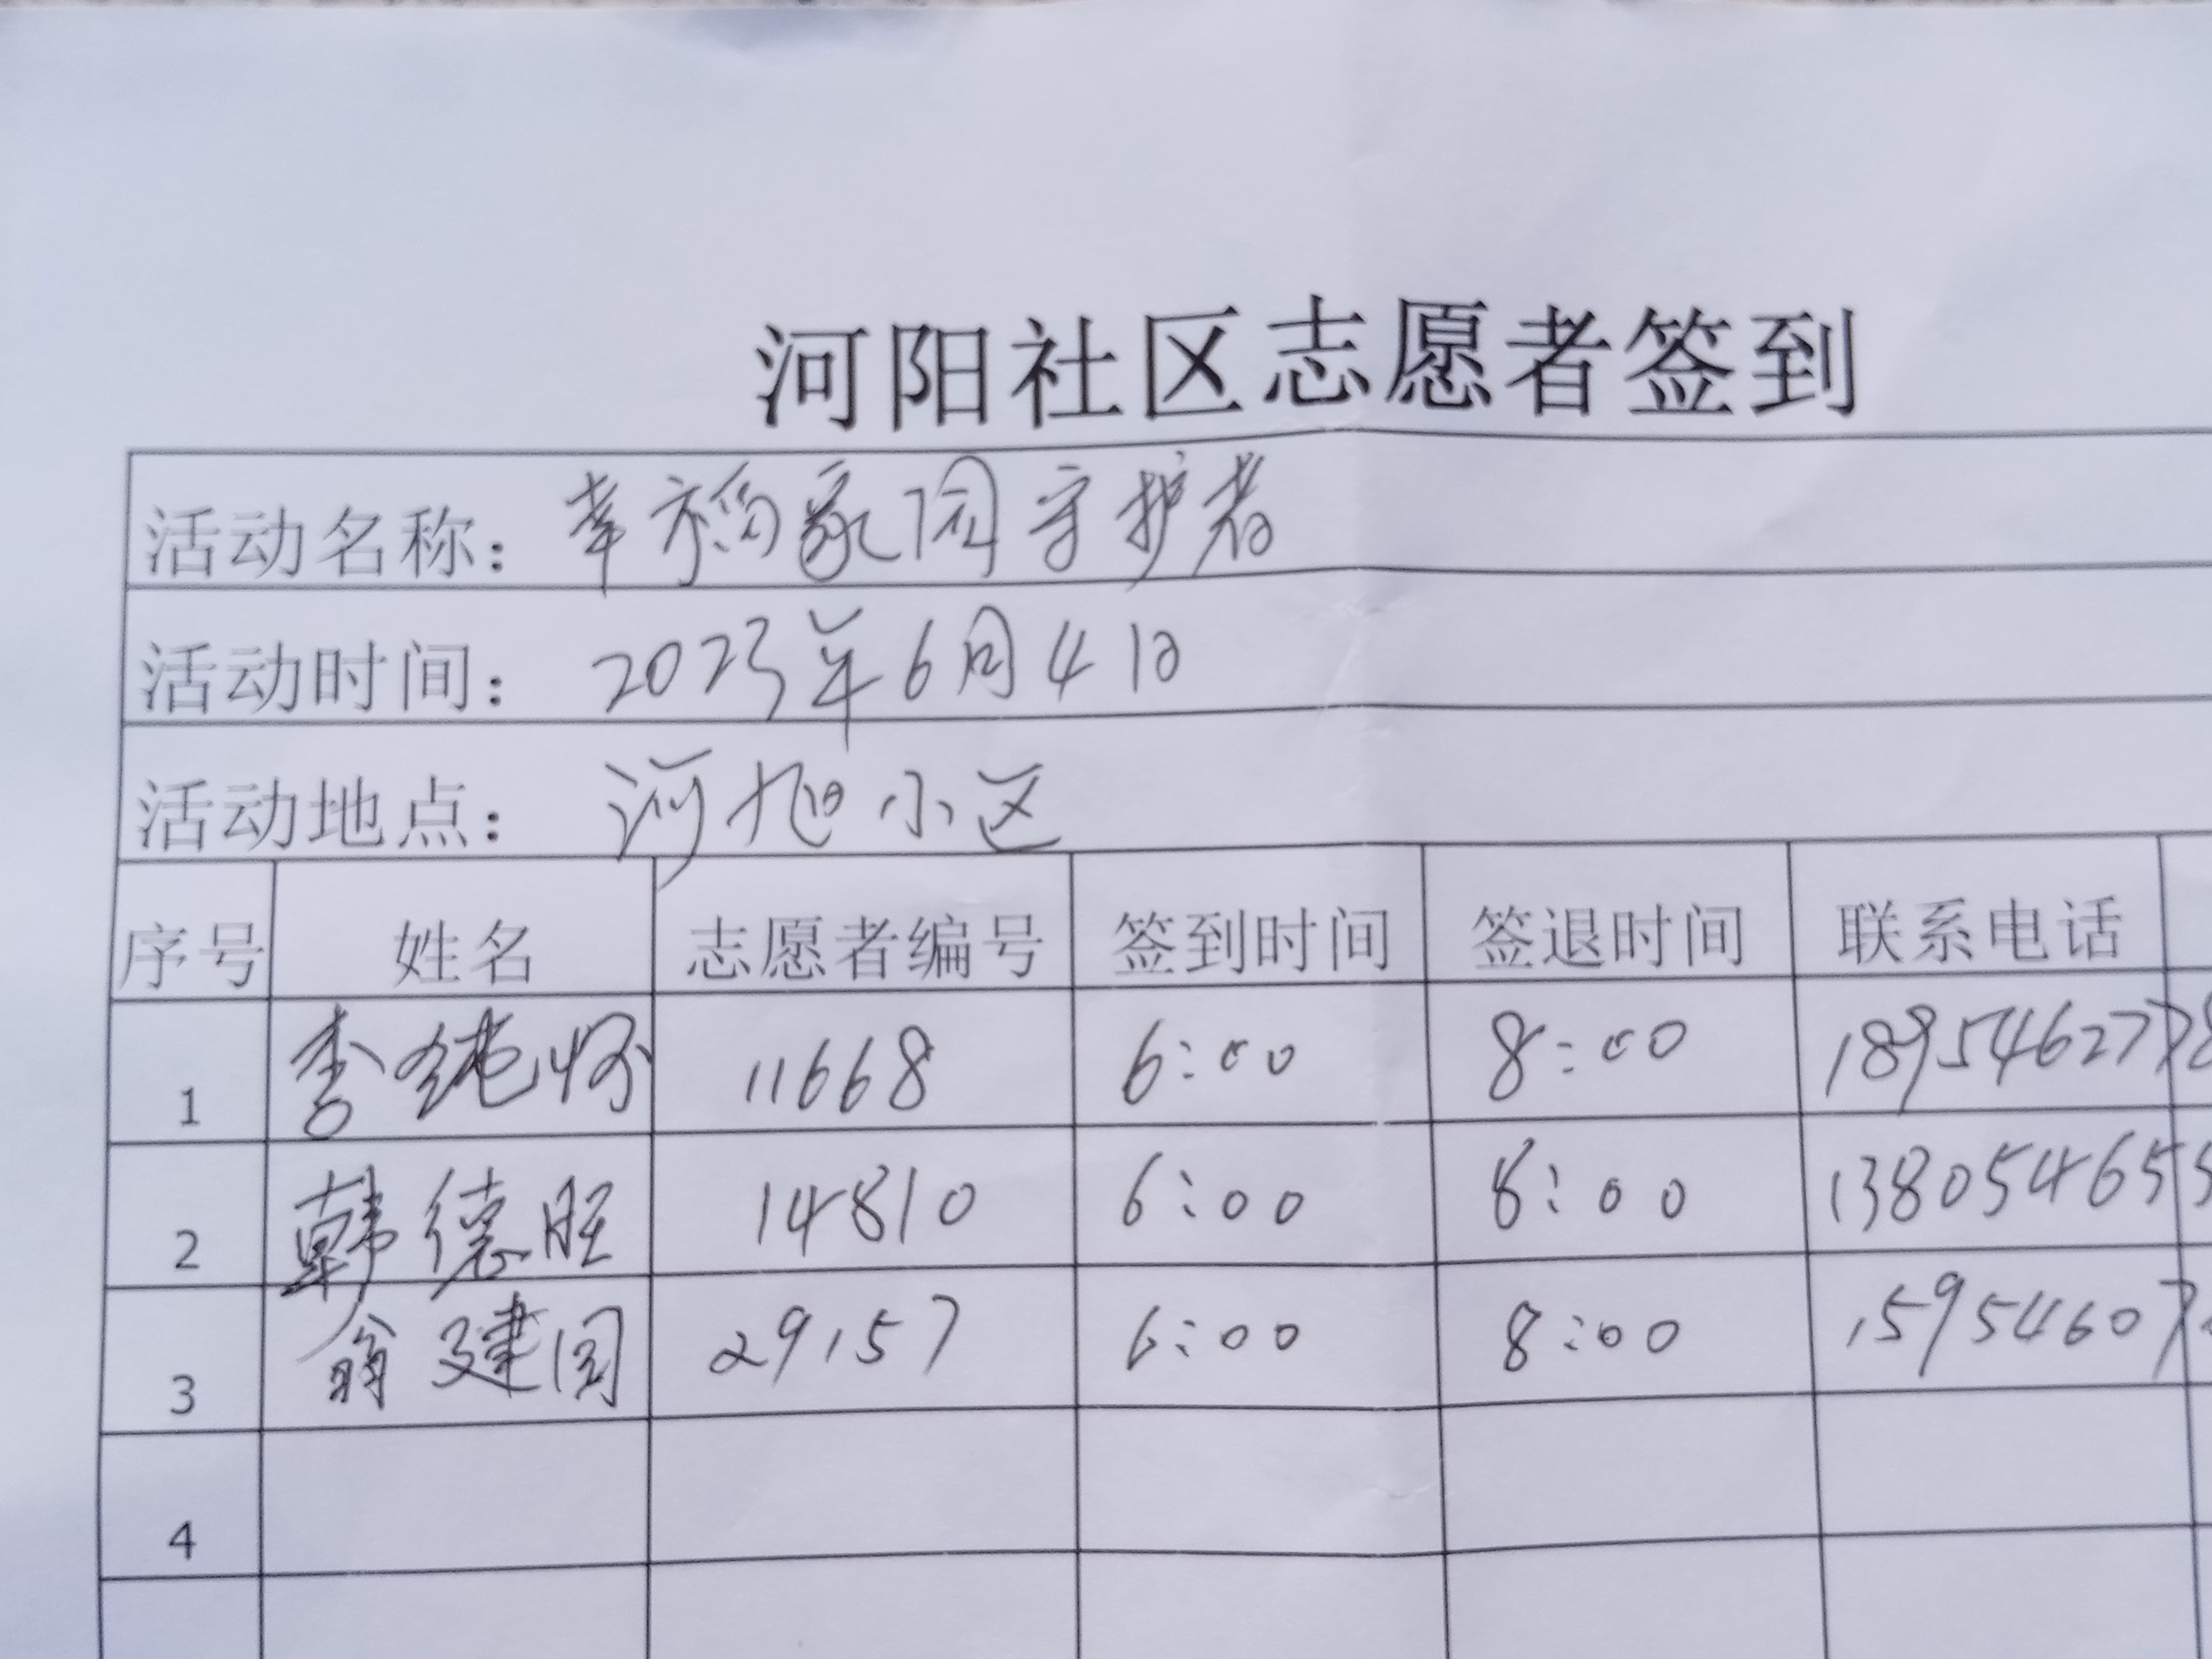 河阳社区志愿者签到
活动名称：幸福家园守护者
活动时间：2023年6月4日
活动地点：河旭小区
序号 姓名 志愿者编号 签到时间 签退时间 联系电话
1 李纯怀 11668 6:00 8:00 1895462778
2 韩德旺 14810 6:00 8:00 138054655
3 翁建国 29157 6:00 8:00 15954607
4